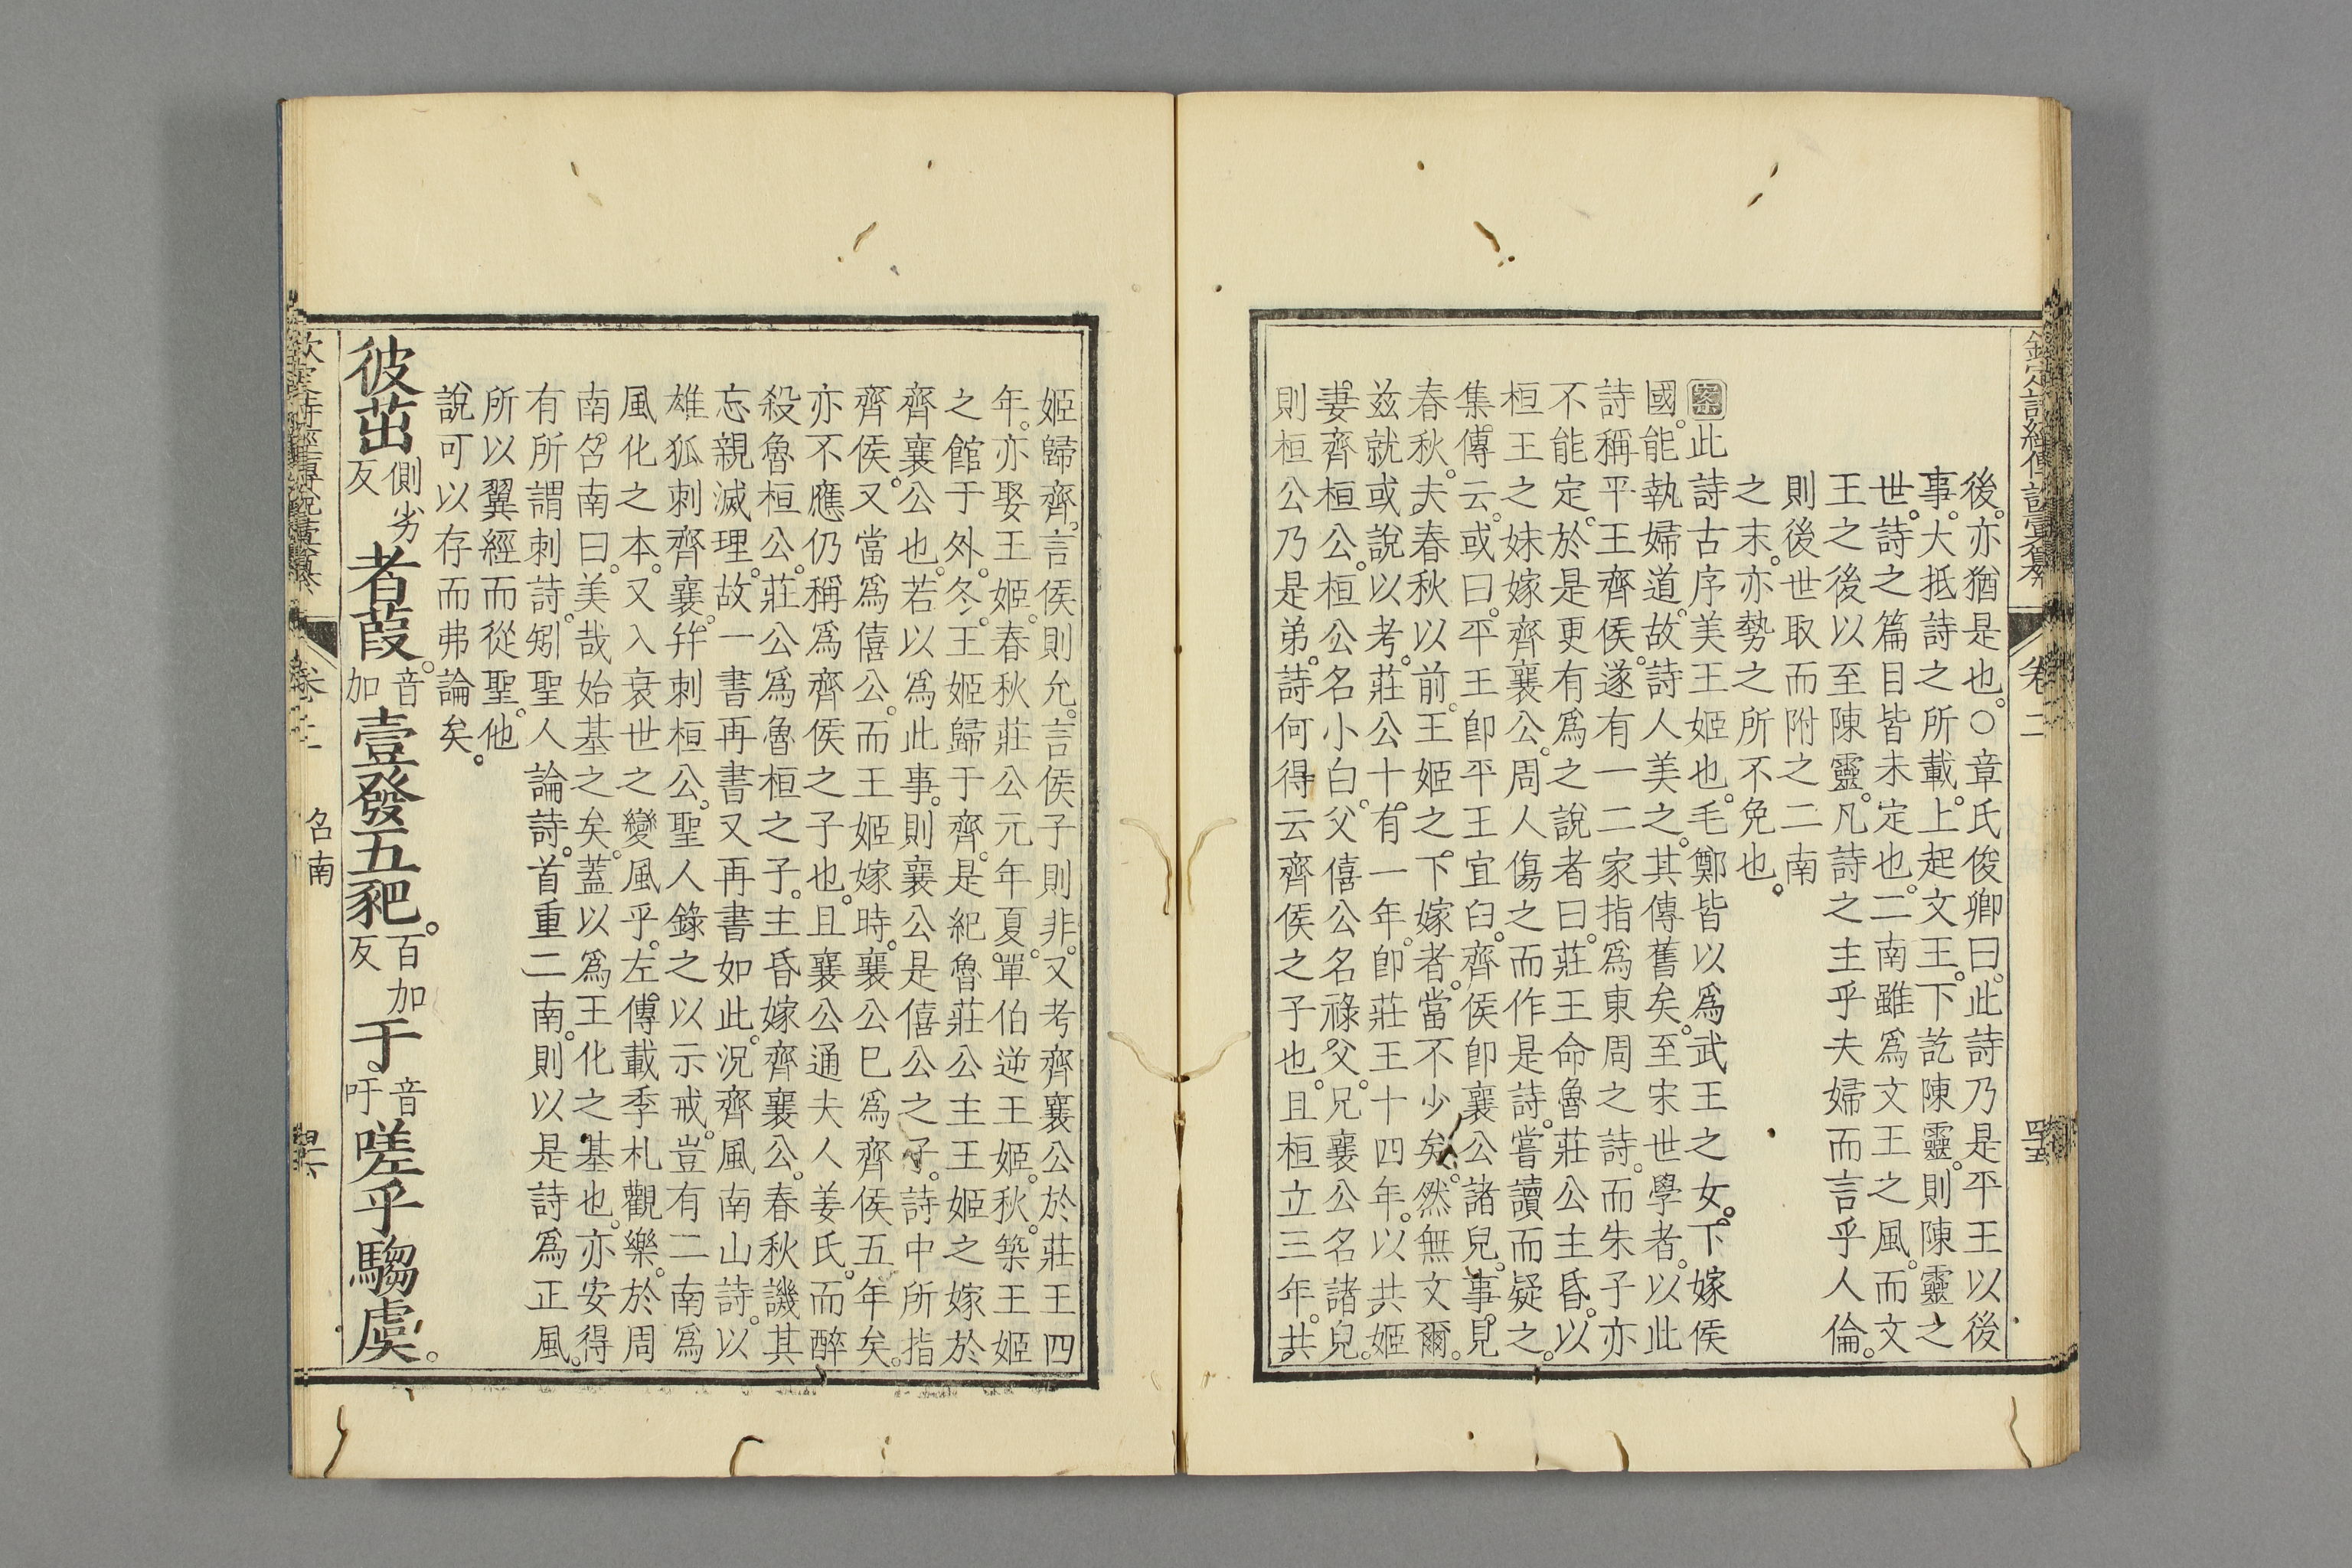 欽定詩經傳說彙纂 卷二 四十五
後。亦猶是也。○章氏俊卿曰。此詩乃是平王以後
事。大抵詩之所載。上起文王。下訖陳靈。則陳靈之
世。詩之篇目皆未定也。二南雖爲文王之風。而文
王之後以至陳靈。凡詩之主乎夫婦而言乎人倫。
則後世取而附之二南
之末。亦勢之所不免也。
案此詩古序美王姬也。毛鄭皆以爲武王之女。下嫁侯
國。能執婦道。故詩人美之。其傳舊矣。至宋世學者。以此
詩稱平王齊侯。遂有一二家指爲東周之詩。而朱子亦
不能定。於是更有爲之說者曰。莊王命魯莊公主昏。以
桓王之妹嫁齊襄公。周人傷之而作是詩。嘗讀而疑之。
集傳云。或曰。平王卽平王宜臼。齊侯卽襄公諸兒。事見
春秋。夫春秋以前。王姬之下嫁者。當不少矣。然無文爾。
兹就或說以考。莊公十有一年。卽莊王十四年。以共姬
妻齊桓公。桓公名小白。父僖公名祿父。兄襄公名諸兒。
則桓公乃是弟。詩何得云齊侯之子也。且桓立三年。共
姬歸齊。言侯則允。言侯子則非。又考齊襄公於莊王四
年。亦娶王姬。春秋莊公元年夏。單伯逆王姬。秋。築王姬
之館于外。冬。王姬歸于齊。是紀魯莊公主王姬之嫁於
齊襄公也。若以爲此事。則襄公是僖公之子。詩中所指
齊侯。又當爲僖公。而王姬嫁時。襄公巳爲齊侯五年矣。
亦不應仍稱爲齊侯之子也。且襄公通夫人姜氏。而醉
殺魯桓公。莊公爲魯桓之子。主昏嫁齊襄公。春秋譏其
忘親滅理。故一書再書又再書如此。況齊風南山詩。以
雄狐刺齊襄。幷刺桓公。聖人錄之以示戒。豈有二南爲
風化之本。又入衰世之變風乎。左傳載季札觀樂。於周
南召南曰。美哉始基之矣。蓋以爲王化之基也。亦安得
有所謂刺詩。矧聖人論詩。首重二南。則以是詩爲正風。
所以翼經而從聖。他
說可以存而弗論矣。
彼茁側劣反者葭。音加壹發五豝。百加反于音吁嗟乎騶虞。
欽定詩經傳說彙纂 卷二 召南 四十六